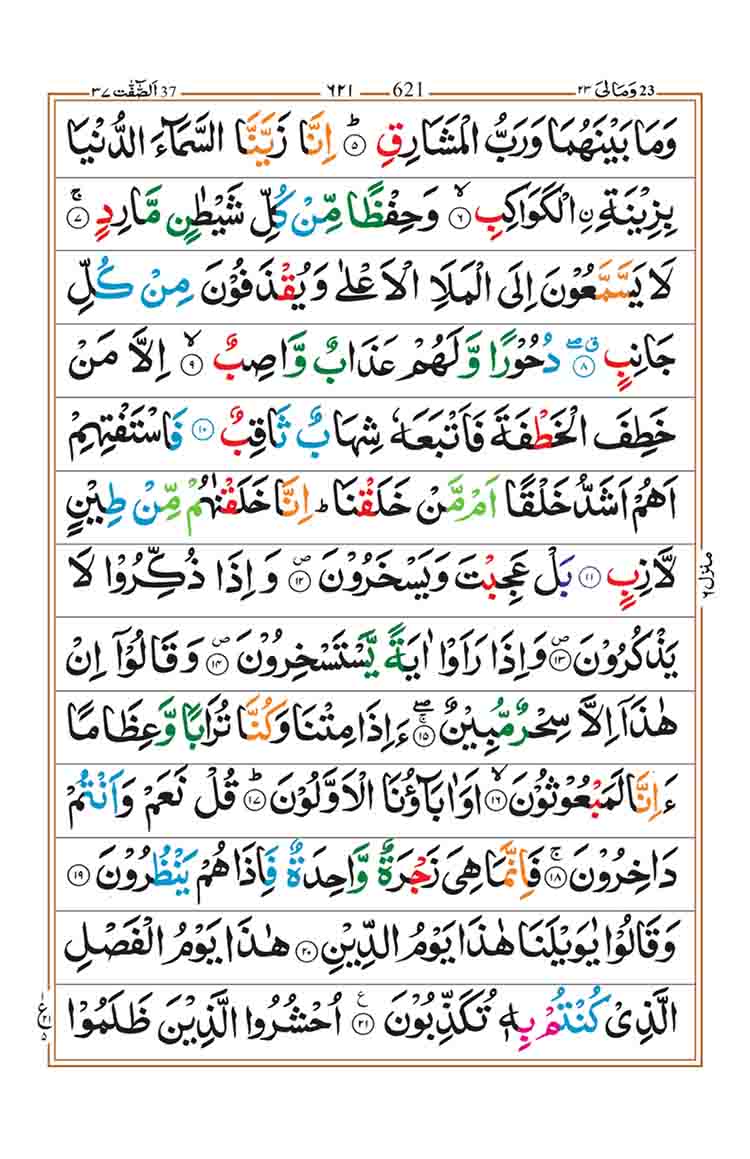 اَلصّٰٓفّٰت ٣٧ 37 ٦٢١ 621 وَمَالِیَ ٢٣ 23
وَمَا بَیْنَهُمَا وَرَبُّ الْمَشَارِقِ ۵ؕ اِنَّا زَیَّنَّا السَّمَآءَ الدُّنْیَا
بِزِیْنَةِ ۣالْكَوَاكِبِ ۶ۙ وَحِفْظًا مِّنْ كُلِّ شَیْطٰنٍ مَّارِدٍ ۷ۚ
لَا یَسَّمَّعُوْنَ اِلَی الْمَلَاِ الْاَعْلٰی وَیُقْذَفُوْنَ مِنْ كُلِّ
جَانِبٍ ۸ۖق دُحُوْرًا وَّلَهُمْ عَذَابٌ وَّاصِبٌ ۹ۙ اِلَّا مَنْ
خَطِفَ الْخَطْفَةَ فَاَتْبَعَهٗ شِهَابٌ ثَاقِبٌ ۱۰ فَاسْتَفْتِهِمْ
اَهُمْ اَشَدُّ خَلْقًا اَمْ مَّنْ خَلَقْنَا ؕ اِنَّا خَلَقْنٰهُمْ مِّنْ طِیْنٍ
لَّازِبٍ ۱۱ بَلْ عَجِبْتَ وَیَسْخَرُوْنَ ۱۲ص وَاِذَا ذُكِّرُوْا لَا
یَذْكُرُوْنَ ۱۳ص وَاِذَا رَاَوْا اٰیَةً یَّسْتَسْخِرُوْنَ ۱۴ص وَقَالُوْۤا اِنْ
هٰذَاۤ اِلَّا سِحْرٌ مُّبِیْنٌ ۱۵ۖۚ ءَاِذَا مِتْنَا وَكُنَّا تُرَابًا وَّعِظَامًا
ءَاِنَّا لَمَبْعُوْثُوْنَ ۱۶ۙ اَوَاٰبَآؤُنَا الْاَوَّلُوْنَ ۱۷ؕ قُلْ نَعَمْ وَاَنْتُمْ
دَاخِرُوْنَ ۱۸ۚ فَاِنَّمَا هِیَ زَجْرَةٌ وَّاحِدَةٌ فَاِذَا هُمْ یَنْظُرُوْنَ ۱۹
وَقَالُوْا یٰوَیْلَنَا هٰذَا یَوْمُ الدِّیْنِ ۲۰ هٰذَا یَوْمُ الْفَصْلِ
الَّذِیْ كُنْتُمْ بِهٖ تُكَذِّبُوْنَ ۲۱ع اُحْشُرُوا الَّذِیْنَ ظَلَمُوْا
منزل ٦
١
ع ٢١
٥